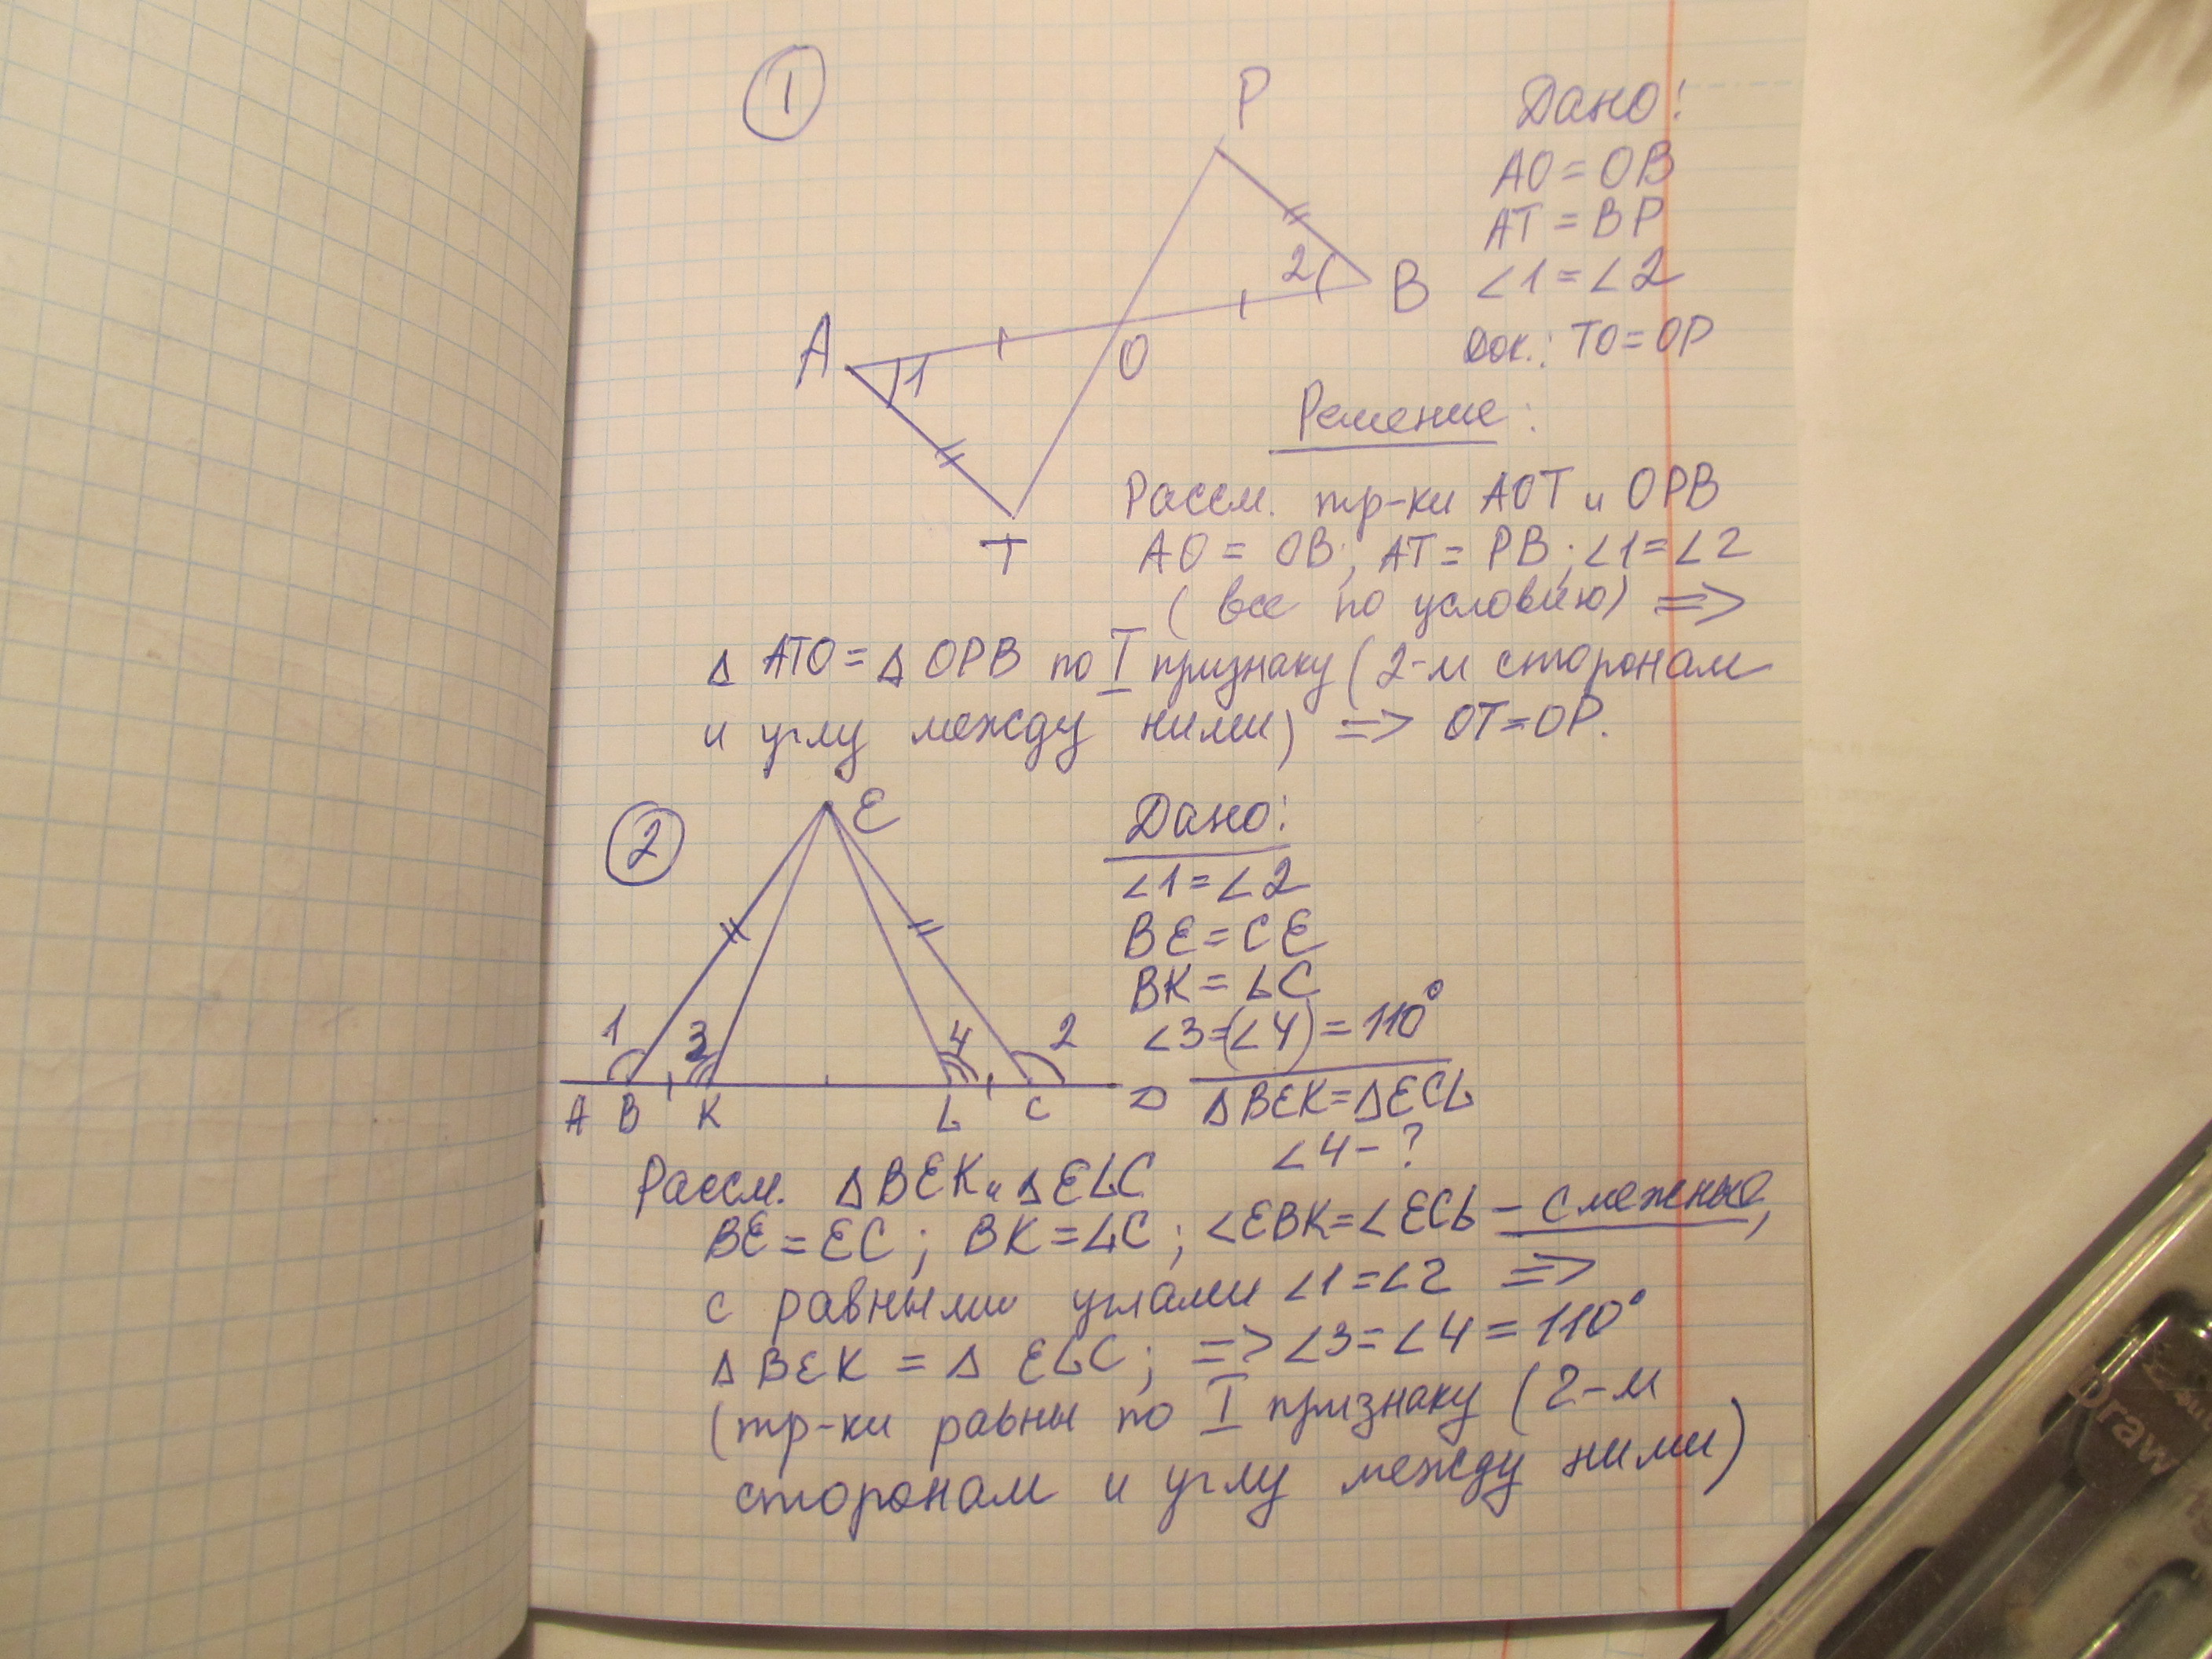 1
P
Дано:
AO = OB
AT = BP
∠1 = ∠2
Док.: TO = OP
2
B
A
1
O
T
Решение:
Рассм. тр-ки AOT и OPB
AO = OB; AT = PB; ∠1 = ∠2
(все по условию) =>
Δ ATO = Δ OPB по I признаку (2-м сторонам
и углу между ними) => OT = OP.
2
E
Дано:
∠1 = ∠2
BE = CE
BK = LC
∠3 = (∠4) = 110°
ΔBEK = ΔECL
∠4 - ?
1 3 4 2
A B K L C D
Рассм. ΔBEK и ΔELC
BE = EC; BK = LC; ∠EBK = ∠ECL - смежные,
с равными углами ∠1 = ∠2 =>
Δ BEK = Δ ELC; => ∠3 = ∠4 = 110°
(тр-ки равны по I признаку (2-м
сторонам и углу между ними)
Draw